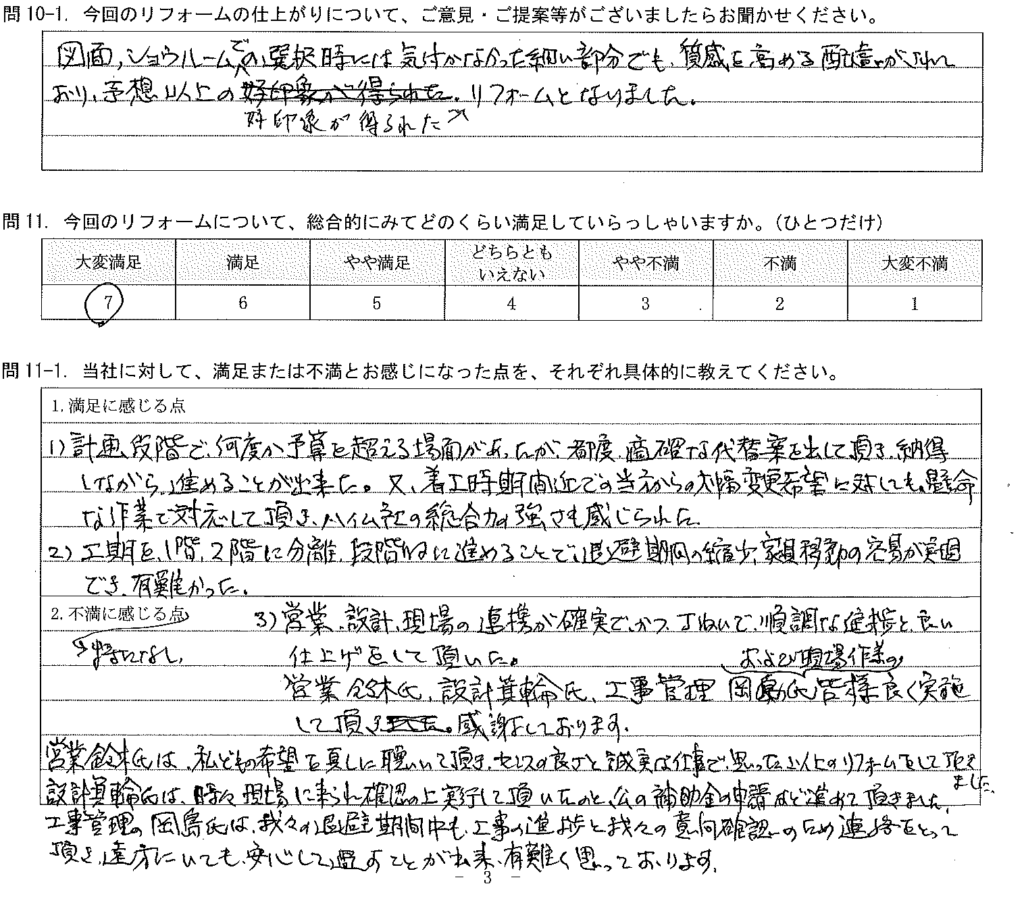 問10-1. 今回のリフォームの仕上がりについて、ご意見・ご提案等がございましたらお聞かせください。
図面,ショウルームでの選択時には気付かなかった細い部分でも、質感を高める配慮がされて
おり、予想以上の好印象が得られた。リフォームとなりました。
好印象が得られた
問11. 今回のリフォームについて、総合的にみてどのくらい満足していらっしゃいますか。(ひとつだけ)
大変満足 満足 やや満足 どちらとも いえない やや不満 不満 大変不満
7 6 5 4 3 2 1
問11-1. 当社に対して、満足または不満とお感じになった点を、それぞれ具体的に教えてください。
1.満足に感じる点
1)計画段階で、何度か予算を超える場面があったが、都度、適確な代替案を出して頂き、納得
しながら、進めることが出来た。又、着工時期間近での当方からの大幅変更希望に対しても、懸命
な作業で対応して頂き、ハイム社の総合力の強さも感じられた。
2)工期を、1階、2階に分離、段階的に進めることで、退避期間の縮少、家具移動の容易が実現
でき、有難かった。
2.不満に感じる点
特になし,
3)営業、設計、現場の連携が確実で、かつ、丁ねいで、順調な進捗と、良い
仕上げをして頂いた。
および現場作業の
営業鈴木氏、設計箕輪氏、工事管理 岡島氏皆様良く実施
して頂き 感謝しております.
営業鈴木氏は、私どもの希望を真しに聴いて頂き、センスの良さと誠実な仕事で、思った以上のリフォームをして頂き
ました.
設計箕輪氏は、時々現場に来られ確認の上実行して頂いたのと、公の補助金の申請など進めて頂きました.
工事管理の岡島氏は、我々の退避期間中も、工事の進捗と我々の意向確認のため連絡をとって
頂き、遠方にいても、安心して過すことが出来、有難く思っております.
- 3 -